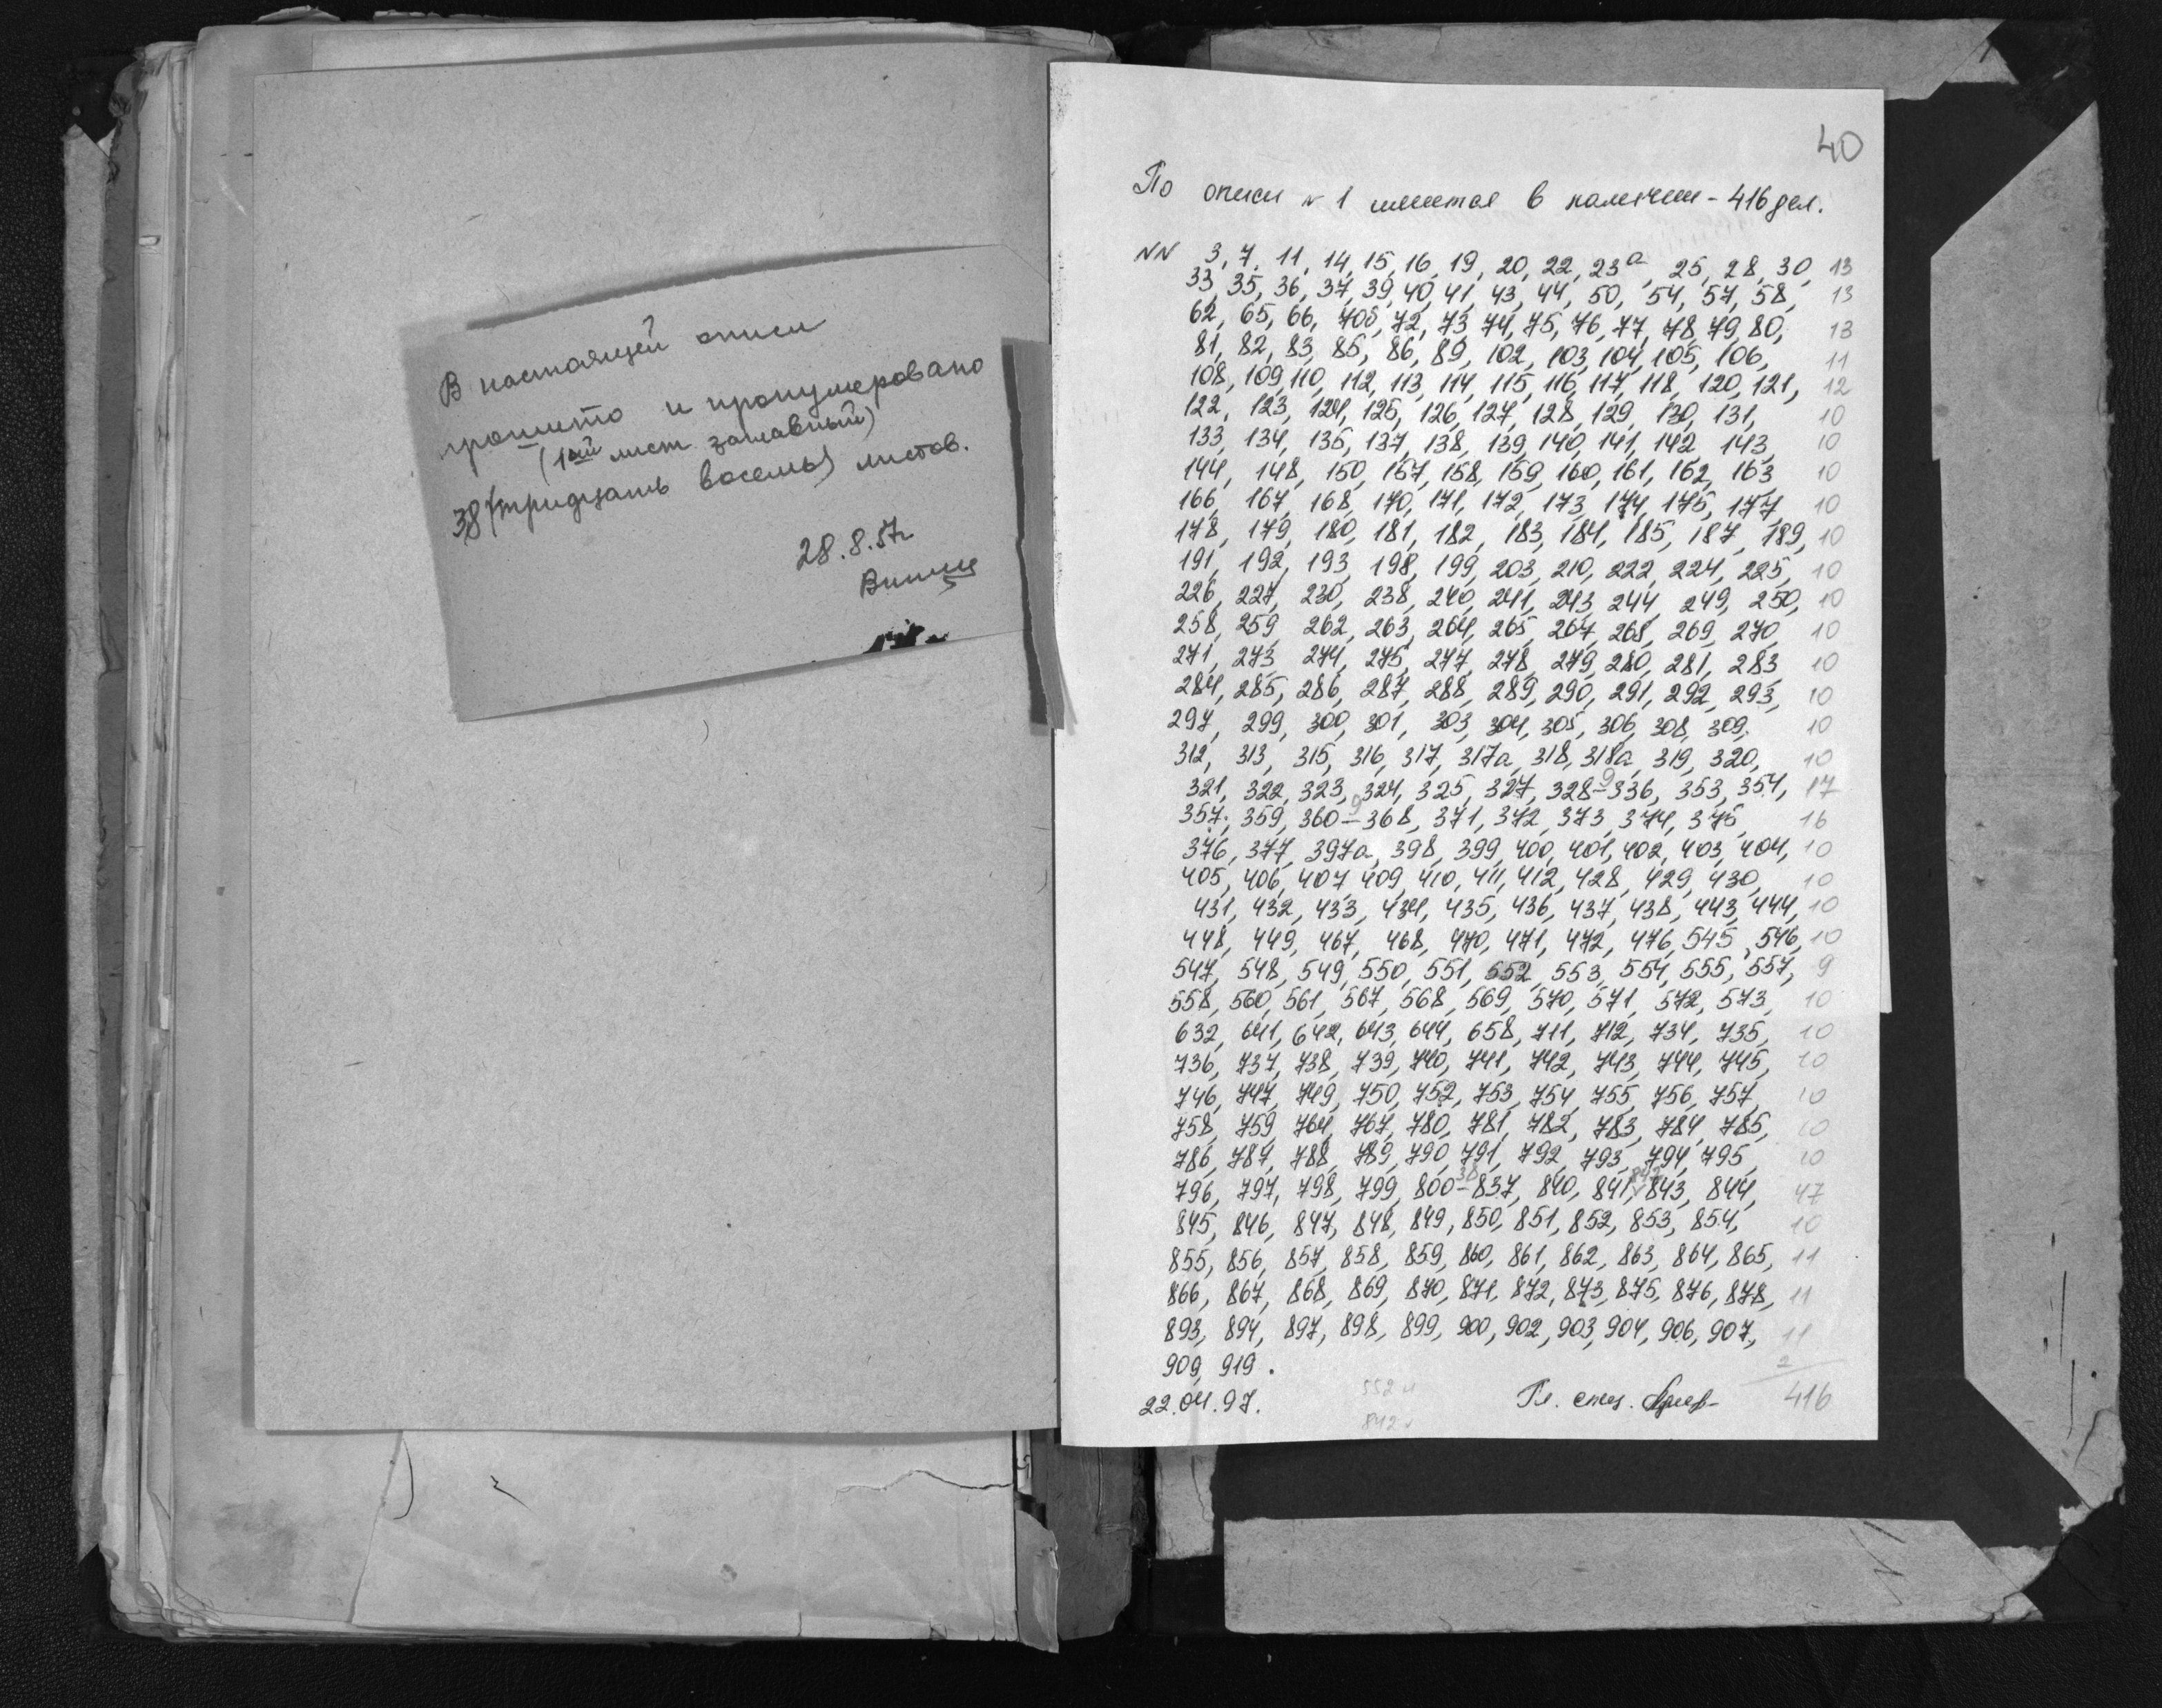 В настоящей описи
прошито и пронумеровано
(1ый лист заглавный)
38 (тридцать восемь) листов.
28.8.57г
40
По описи N 1 имеется в наличии - 416 дел.
NN 3, 7, 11, 14, 15, 16, 19, 20, 22, 23а, 25, 28, 30, 13
33, 35, 36, 37, 39, 40, 41, 43, 44, 50, 54, 57, 58, 13
62, 65, 66, 70б, 72, 73, 74, 75, 76, 77, 78, 79, 80, 13
81, 82, 83, 85, 86, 89, 102, 103, 104, 105, 106, 11
108, 109, 110, 112, 113, 114, 115, 116, 117, 118, 120, 121, 12
122, 123, 124, 125, 126, 127, 128, 129, 130, 131, 10
133, 134, 135, 137, 138, 139, 140, 141, 142, 143, 10
144, 148, 150, 157, 158, 159, 160, 161, 162, 163 10
166, 167, 168, 170, 171, 172, 173, 174, 175, 177, 10
178, 179, 180, 181, 182, 183, 184, 185, 187, 189, 10
191, 192, 193, 198, 199, 203, 210, 222, 224, 225, 10
226, 227, 230, 238, 240, 241, 243, 244, 249, 250, 10
258, 259, 262, 263, 264, 265, 267, 268, 269, 270, 10
271, 273, 274, 275, 277, 278, 279, 280, 281, 283 10
284, 285, 286, 287, 288, 289, 290, 291, 292, 293, 10
297, 299, 300, 301, 303, 304, 305, 306, 308, 309, 10
312, 313, 315, 316, 317, 317а, 318, 318а, 319, 320, 10
321, 322, 323, 324, 325, 327, 328-336, 353, 354, 17
9
357, 359, 360-368, 371, 372, 373, 374, 375, 16
9
376, 377, 397а, 398, 399, 400, 401, 402, 403, 404, 10
405, 406, 407, 409, 410, 411, 412, 428, 429, 430, 10
431, 432, 433, 434, 435, 436, 437, 438, 443, 444, 10
448, 449, 467, 468, 470, 471, 472, 476, 545, 546, 10
547, 548, 549, 550, 551, 552, 553, 554, 555, 557, 9
558, 560, 561, 567, 568, 569, 570, 571, 572, 573, 10
632, 641, 642, 643, 644, 658, 711, 712, 734, 735, 10
736, 737, 738, 739, 740, 741, 742, 743, 744, 745, 10
746, 747, 749, 750, 752, 753, 754, 755, 756, 757, 10
758, 759, 764, 767, 780, 781, 782, 783, 784, 785, 10
786, 787, 788, 789, 790, 791, 792, 793, 794, 795, 10
38 842
796, 797, 798, 799, 800-837, 840, 841, 843, 844, 47
845, 846, 847, 848, 849, 850, 851, 852, 853, 854, 10
855, 856, 857, 858, 859, 860, 861, 862, 863, 864, 865, 11
866, 867, 868, 869, 870, 871, 872, 873, 875, 876, 878, 11
893, 894, 897, 898, 899, 900, 902, 903, 904, 906, 907, 11
909, 919. 2
22.04.97. 552 Гл. спец. 416
842